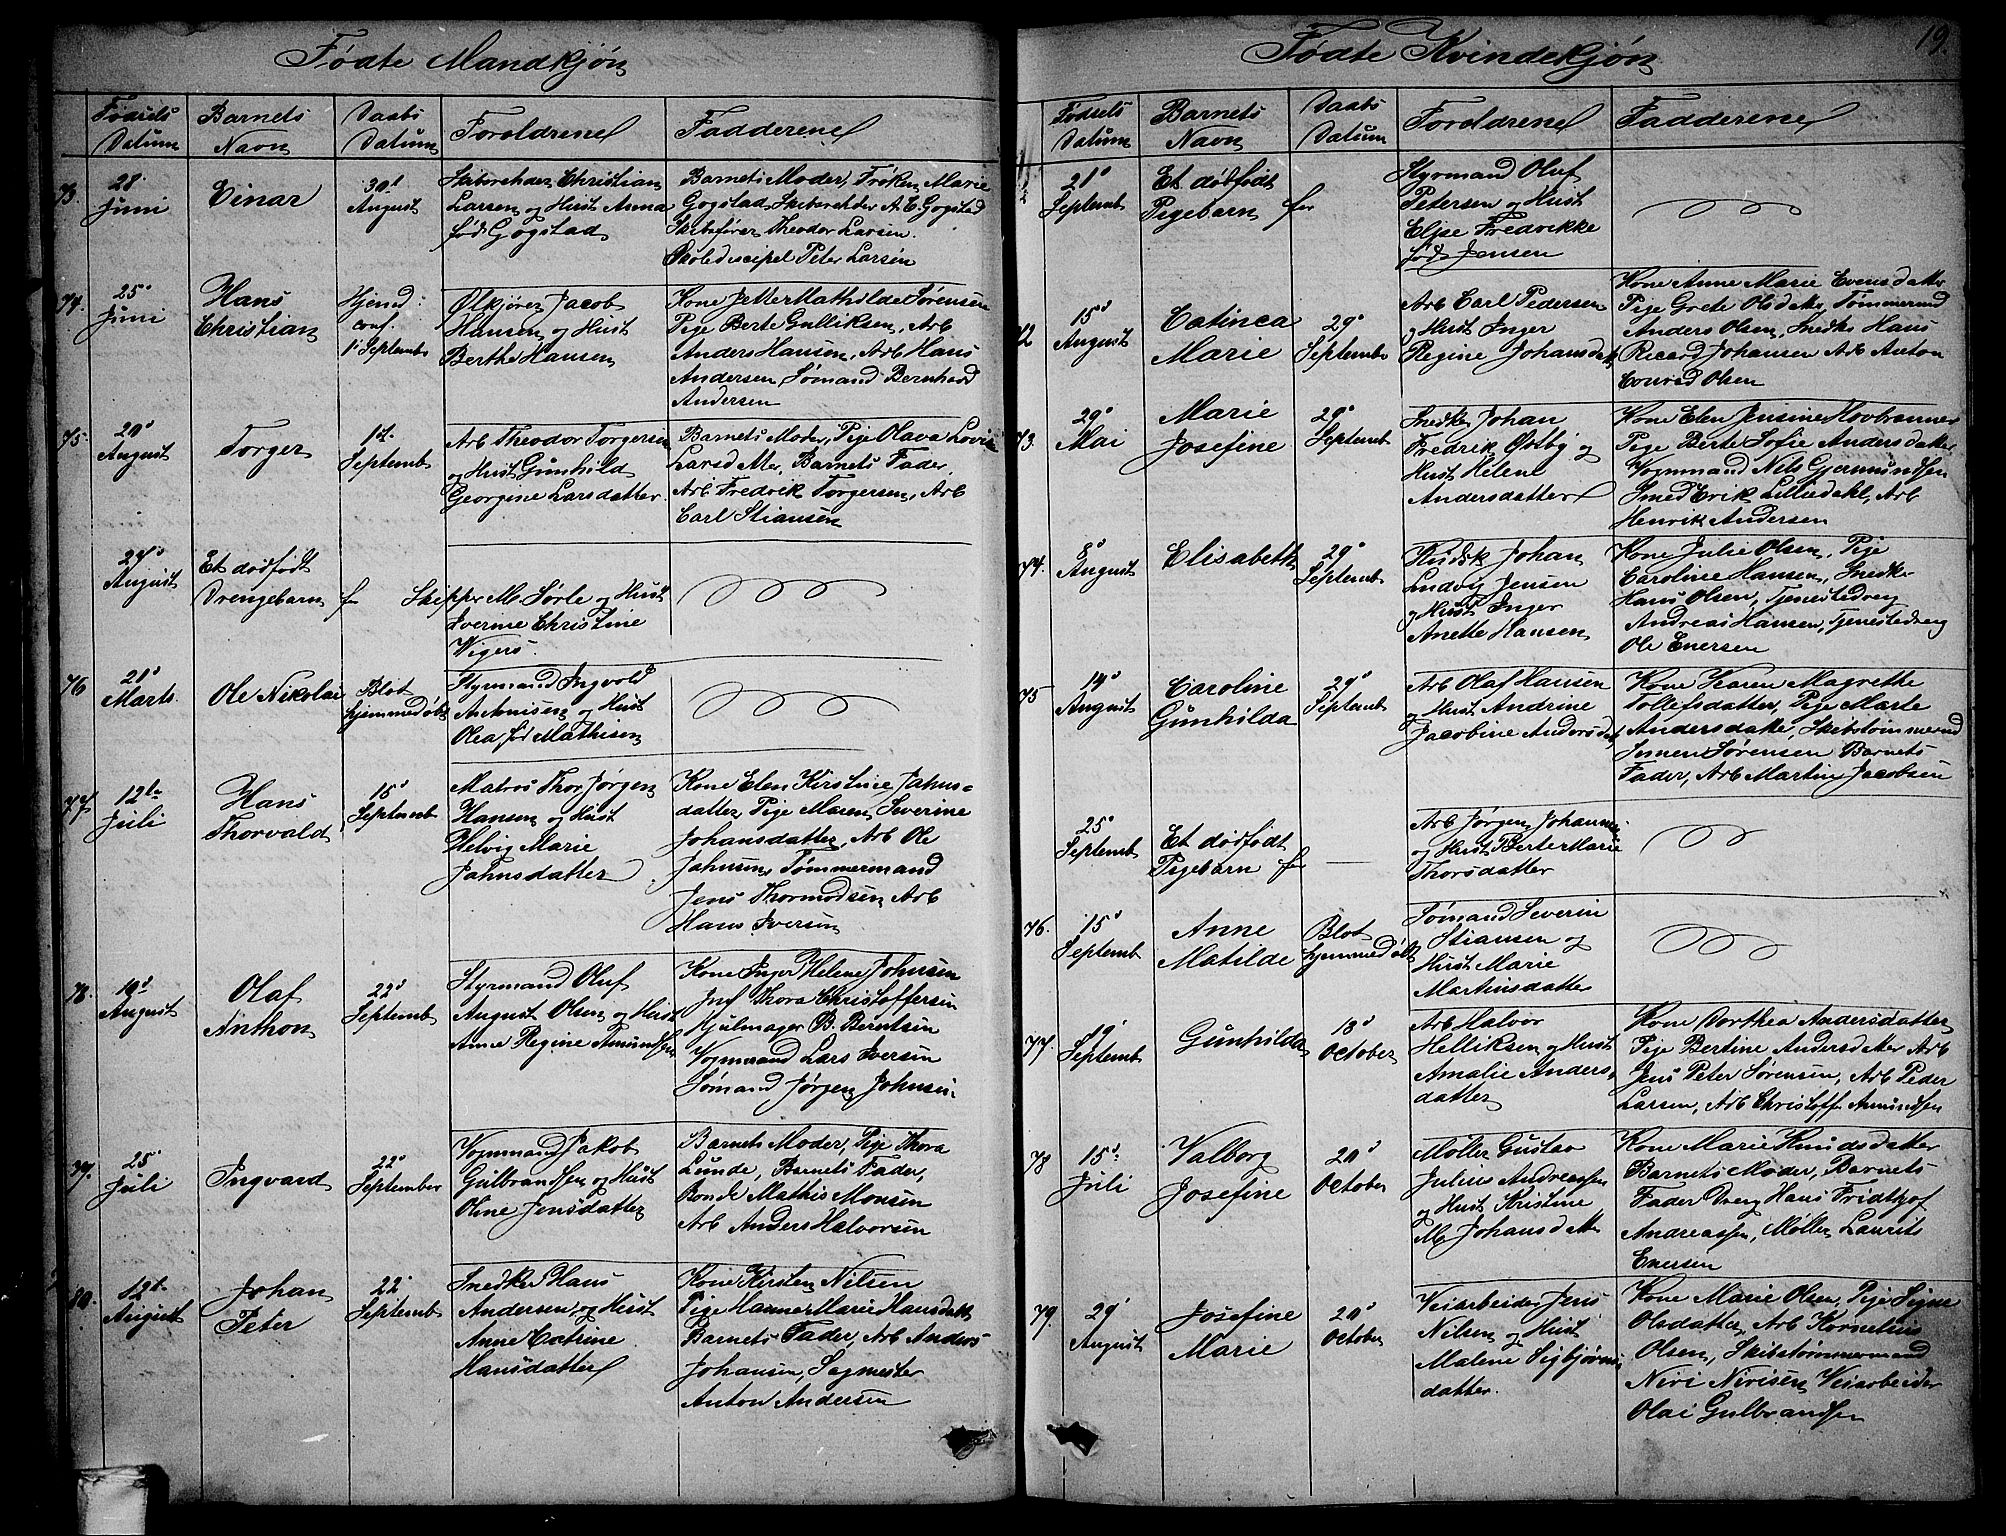 19.
Fødte Mandkjøn
Fødsels Datum
Barnets Navn
Daabs Datum
Foreldrene
Fadderene
73.
28' Juni
Einar
30t August
Skibsreder Christian
Larsen og Hust Anna
fød Gogstad
Barnets Moder, Frøken Marie
Gogstad, Skibsreder A. E. Gogstad
Skibsfører Theodor Larsen.
Skolediscipel Peter Larsen
74.
25' Juni
Hans
Christian
Hjemd:
conf.
1' Septembr
Ølkjører Jacob
Hansen og Hust
Berthe Hansen
Kone Jette Mathilde Sørensen
Pige Berte Gulliksen, Arb
Anders Hansen, Arb Hans
Andersen, Sømand Bernhard
Andersen
75.
20' August
Torger
Septemb
Arb Theodor Torgersen
og Hust Gunhild
Georgine Larsdatter
Barnets Moder, Pige Olava Lovise
Larsdatter, Barnets Fader,
Arb Fredrik Torgersen, Arb
Carl Stiansen
24' August
Et dødfødt
Drengebarn
Skipper M. Sørle og Hust
Iverine Christine
Vigers.
76
21' Marts
Ole Nikolai
Blot
hjemmedøbt
Styrmand Ingvold
Antonisen og Hust
Olea, fød Mathisen
77.
12te Juli
Hans
Thorvald
15' Septemb
Matros Thor Jørgen
Hansen og Hust
Helvig Marie
Jahnsdatter
Kone Elen Kirstine Jahns-
datter, Pige Maren Severine
Johansdatter, Arb Ole
Jahnsen, Tømmermand
Jens Thormodsen, Arb
Hans Iversen
78.
19' August
Olaf
Anthon
22' Septemb
Styrmand Oluf
August Olsen og Hust
Anne Regine Amundsen
Kone Inger Helene Johnsen
Jnf Thora Christoffersen
Hjulmager B. Berntsen
Vognmand Lars Iversen
Sømand Jørgen Johnsen.
79.
25' Juli
Ingvard
22' September
Vognmand Jakob
Gulbrandsen og Hust
Oline Jensdatter
Barnets Moder, Pige Thora
Lunde, Barnets Fader,
Bonde Mathis Monsen
Arb Anders Halvorsen
80.
12te August
Johan
Peter
22' Septemb
Snedker Hans
Andersen og Hust
Anne Catrine
Hansdatter
Kone Kirsten Nilsen
Pige Hanne Marie Hansdatt
Barnets Fader, Arb Anders
Johansen, Sagmester
Anton Andersen
Fødte Kvindekjøn
Fødsels Datum
Barnets Navn
Daabs Datum
Foreldrene
Fadderene
21' Septemb
Et dødfødt
Pigebarn
Styrmand Oluf
Petersen og Hust
Elise Fredrikke
fød Jensen
72
15' August
Catinca
Marie
29' Septemb
Arb Carl Pedersen
og Hust Inger
Regine Johansdatt
Kone Anne Marie Evensdatter
Pige Grete Olsdatter, Tømmermd
Anders Olsen, Snedker Hans
Ricard Johansen Arb Anton
Conrad Olsen
73.
29' Mai
Marie
Josefine
29' Septemb
Snedk Johan
Fredrik Østby og
Hust Helene
Andersdatter
Kone Elen Jensine Hovbranner
Pige Berte Sofie Andersdatter
Vognmand Nils Gjermundsen
Smed Erik Lilliedahl, Arb
Henrik Andersen
74.
8' August
Elisabeth
29' Septemb
Rudsk Johan
Ludvig Jensen
og Hust Inger
Anette Hansen
Kone Julie Olsen, Pige
Caroline Hansen, Snedker
Hans Olsen, Tjenestedreng
Andreas Hansen, Tjenestedreng
Ole Enersen
75
19' August
Caroline
Gunhilda
29' Septemb
Arb Olaf Hansen
og Hust Andrine
Jacobine Andersdatt
Kone Karen Magrethe
Tollefsdatter, Pige Marte
Andersdatter, Skibstømmermd
Sørensen Barnets
Fader, Arb Martin Jacobsen
25' Septemb
Et dødfødt
Pigebarn
Arb Jørgen Johannes
og Hust Berte Marie
Thorsdatter
76.
15' Septemb
Anne
Matilde
Blot
hjemmedøbt
Sømand Severin
Stiansen og
Hust Marie
Martinsdatter
77.
19' Septemb
Gunhilda
18' October
Arb Halvor
Helliksen og Hust
Amalie Anders-
datter
Kone Dorthea Andersdatter
Pige Bertine Andersdatter Arb
Jens Peter Sørensen, Arb Peder
Larsen, Arb Christoffer Amundsen
78
15' Juli
Valborg
Josefine
20' October
Møller Gustav
Julius Andreassen
og Hust Kristine
M. Johansdatter
Kone Marie Knudsdatter
Barnets Moder, Barnets
Fader Dreng Hans Fridthjof
Andreassen, Møller Laurits
Enersen
79.
29' August
Josefine
Marie
20' October
Veiarbeider Jens
Nilsen og Hust
Malene Sigbjørns
datter.
Kone Marie Olsen, Pige Signe
Olsdatter, Arb Kornelius
Olsen, Skibstømmermand
Niri Nirisen, Veiarbeider
Olai Gulbrandsen